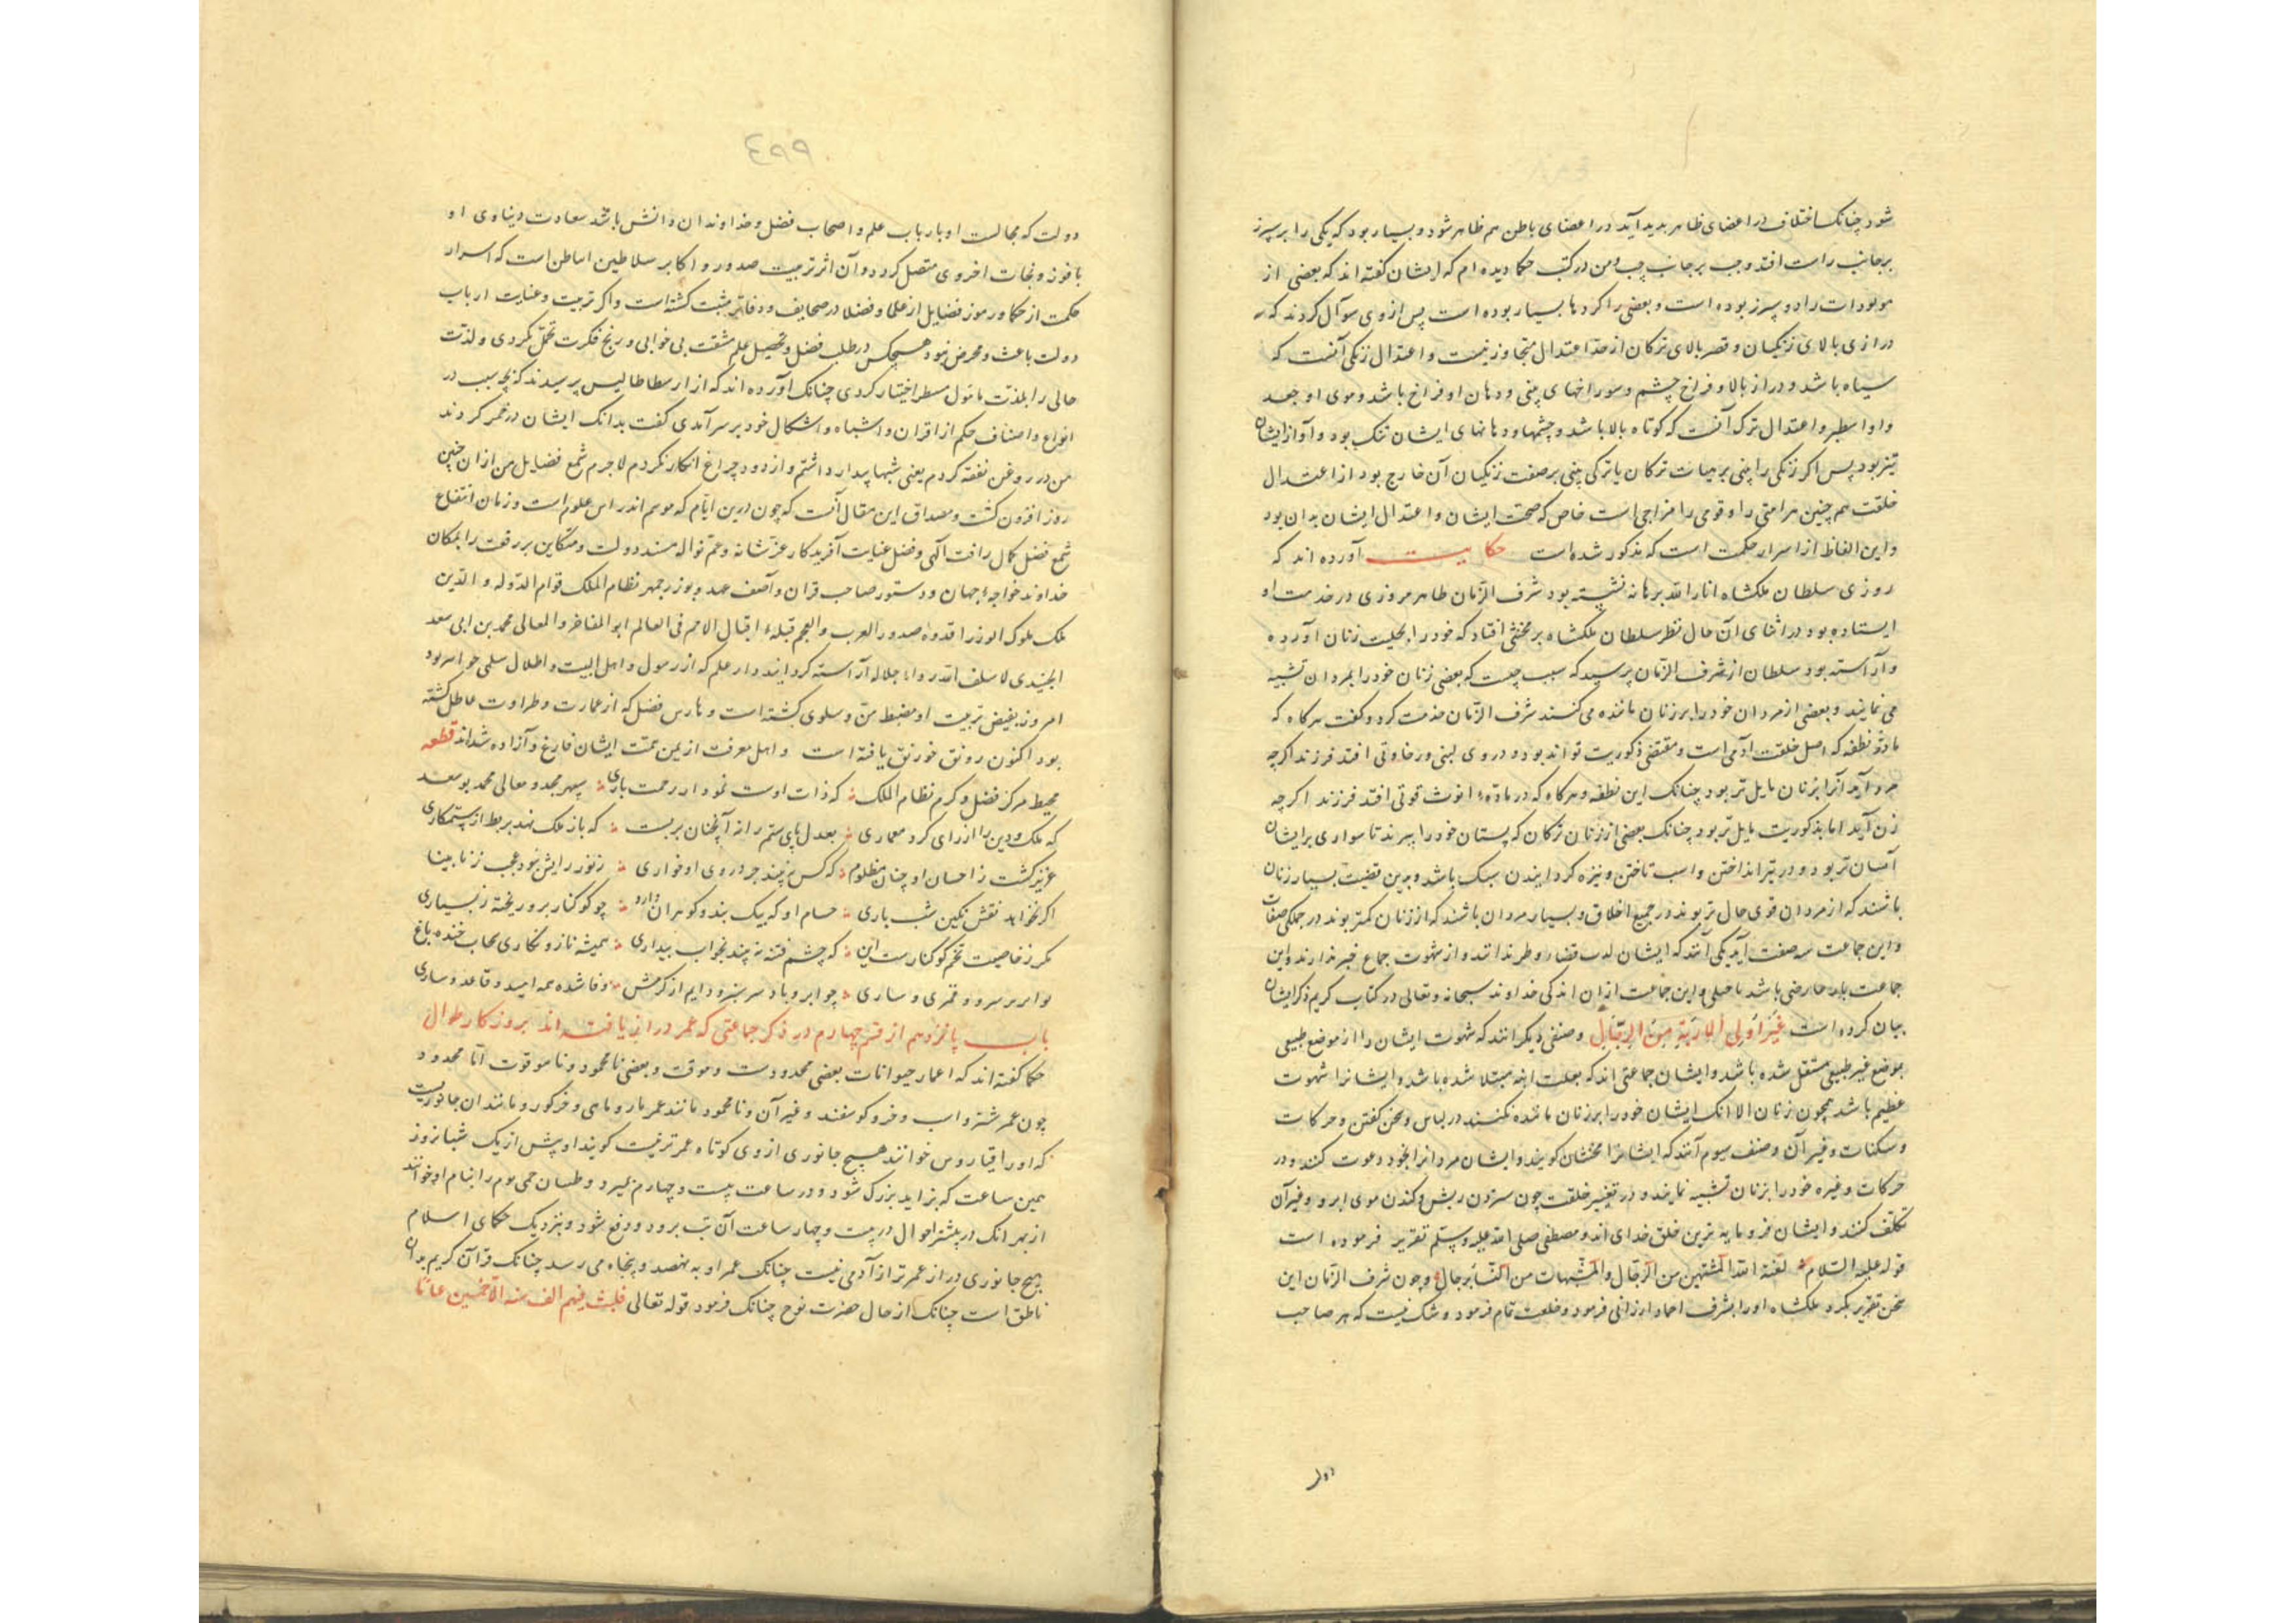 شود چنانک اختلاف در اعضای ظاهر پدید آید در اعضای باطن هم ظاهر شود و بسیار بود که یکی را سپرز
برجانب راست افتد و جب برجانب چپ ومن در کتب حکما دیده ام که ایشان گفته اند که بعضی از
مولودات را دو سپرز بوده است و بعضی را کردها بسیار بوده است پس از وی سوآل کردند که
درازی بالای زنگیان و قصر بالای ترکان از حد اعتدال متجاوز نیست و اعتدال زنگی آنست که
سیاه باشد و دراز بالا و فراخ چشم و سوراخهای بینی و دهان او فراخ باشد و موی او جعد
و اعتدال ترک آنست که کوتاه بالا باشد و چشمها و دهانهای ایشان تنک بود و آواز ایشان
تیز بود پس اکر زنکی را بینی بر هیات ترکان یا ترکی بینی بر صفت زنکیان آن خارج بود از اعتدال
خلقت هم چنین هر امتی را و قومی را مزاجی است خاص که صحت ایشان و اعتدال ایشان بدان بود
و این الفاظ از اسرار حکمت است که مذکور شده است حکایت آورده اند که
روزی سلطان ملکشاه انار الله برهانه نشسته بود شرف الزمان طاهر مروزی در خدمت او
ایستاده بود در اثنای آن حال نظر سلطان ملکشاه بر مخنثی افتاد که خود را بحلیت زنان آورده
و آراسته بود سلطان از شرف الزمان پرسید که سبب چیست که بعضی زنان خود را بمردان تشبیه
می نمایند و بعضی از مردان خود را بر زنان ماننده می کنند شرف الزمان خدمت کرد و کفت هرکاه که
مادّهٔ نطفه که اصل خلقت آدمی است و مقتضی ذکوریت تواند بود و در وی لینی و رخاوتی افتد فرزند اکرچه
مرد آید آنرا بزنان مایل تر بود چنانک این نطفه و هرکاه که در مادّهء انوث قوتی افتد فرزند اکرچه
زن آید اما بذکوریت مایل تر بود چنانک بعضی از زنان ترکان که پستان خود را ببرند تا سواری بر ایشان
آسان تر بود و در تیر انداختن و اسب تاختن و نیزه کردانیدن سبک باشد و بدین قضیت بسیار زنان
باشند که از مردان قوی حال تر بوند در جمیع اخلاق و بسیار مردان باشند که از زنان کمتر بوند در جملکی صفات
و این جماعت سه صفت آید یکی آنند که ایشان لذت قضاء وطر ندانند و از شهوت جماع خبر ندارند و این
جماعت یا عارضی باشد یا خلقی و این جماعت از ان اند کی خداوند سبحانه و تعالی در کتاب کریم ذکر ایشان
بیان کرده است غَیْرِ اُولِی الْاِرْبَةِ مِنَ الرِّجَالِ و صنفی دیکر انند که شهوت ایشان را از موضع طبیعی
بموضع غیر طبیعی منتقل شده باشد و ایشان جماعتی اند که بعلت ابنه مبتلا شده باشد و ایشانرا شهوت
عظیم باشد همچون زنان الا انک ایشان خود را بر زنان ماننده نکنند در لباس و سخن کفتن و حرکات
و سکنات و غیر آن و صنف سیوم آنند که ایشانرا مخنثان کویند و ایشان مردانرا بخود دعوت کنند و در
حرکات و غیره خود را بزنان تشبیه نمایند و در تغییر خلقت چون ستردن ریش و کندن موی ابرو و غیر آن
تکلف کنند و ایشان فرومایه ترین خلق خدای اند و مصطفی صلی الله علیه وسلم تقریر فرموده است
قوله علیه السلام لعنة الله المشتبهین من الرجال والمشبهات من النساء برجال و چون شرف الزمان این
سخن تقریر بکرد ملکشاه او را بشرف احماد ارزانی فرمود و خلعت تمام فرمود و شک نیست که هر صاحب
دولت
٤٩٩
دولت که مجالست او با ارباب علم و اصحاب فضل و خداوندان دانش باشد سعادت دنیاوی او
با فوز و نجات اخروی متصل کردد و آن اثر تربیت صدور و اکابر سلاطین اساطین است که اسرار
حکمت از حکما و رموز فضایل از علما و فضلا در صحایف و دفاتر مثبت کشته است و اکر تربیت و عنایت ارباب
دولت باعث و محرض نبود هیچکس در طلب فضل و تحصیل علم مشقت بی خوابی و رنج فکرت تحمّل نکردی و لذت
حالی را بلذت مامول منتظر اختیار کردی چنانک آورده اند که از ارسطاطالیس پرسیدند که بچه سبب در
انواع و اصناف حکم از اقران و اشباه و اشکال خود بر سر آمدی کفت بدانک ایشان در خمر کردند
من در روغن نفقه کردم یعنی شبها بیدار داشتم و از دود چراغ انکار نکردم لاجرم شمع فضایل من از ان چنین
روز افزون کشت و مصداق این مقال آنست که چون درین ایّام که موسم اندراس علوم است و زمان انتفاع
شمع فضل کمال رافت آلهی و فضل عنایت آفریدکار عزّ شانه و عمّ نواله مسند دولت و متکاین بر رفعت را بمکان
خداوند خواجهٔ جهان و دستور صاحب قران و آصف عهد و بوزرجمهر نظام الملک قوام الدوله و الدین
ملک ملوک الوزرا قدوهٔ صدور العرب و العجم قبلهٔ اقبال الامم فی العالم ابو المفاخر والمعالی محمد بن ابی سعد
الجنیدی لا سلف الله روا جلاله آراسته کردانید دار علم که از رسول و اهل البیت و اطلال سلمی خواهد بود
امروز بفیض تربیت او مضبط منّ و سلوی کشته است و مدارس فضل که از عمارت و طراوت عاطل کشته
بود اکنون رونق خورنق یافته است و اهل معرفت از یمن همّت ایشان فارغ و آزاده شده اند قطعه
محیط مرکز فضل و کرم نظام الملک که ذات اوست نمودار رحمت باری سپهر مجد و معالی محمد بو سعد
که ملک و دین را از رای کرد معماری بعدل پای ستم را نه آنچنان بربست که باز ملک نهد بر بط از ستمکاری
عزیز کشت ز احسان او چنان مظلوم که کس نبیند جز در روی او خواری ز نور رایش نبود عجب ز نابینا
اکر بخواند نقش نکین شب تاری حسام او که بیک بند و کوهران دارد چو کوکنار برو ریخته ز بسیاری
مکر ز خاصیت تخم کوکنارست این که چشم فتنه نه بیند بخواب بیداری همیشه تازه و نکاری سحاب خنده باغ
نوا برسر سرو و قمری و ساری چو ابر و باد سرسبز و دایم از کرمش وفا شده همه امید و قاعد و ساری
باب پانزدهم از قسم چهارم در ذکر جماعتی که عمر دراز یافته اند بروزکار طوال
حکما کفته اند که اعمار حیوانات بعضی محدودست و موقت و بعضی نامحمود و ناموقوت امّا محدود
چون عمر شتر و اسب و خر و کوسفند و غیر آن و نامحدود مانند عمر مار و ماهی و خر کور و مانند ان جانوریست
که او را اقیماروس خوانند هیچ جانوری از وی کوتاه عمرتر نیست کویند او پیش از یک شبانروز
همین ساعت که بزاید بزرک شود و در ساعت بیست و چهارم بمیرد و طبیبان حمی یوم را بنام او خوانند
از بهر انک در بیشتر احوال در بیست و چهار ساعت آن تب برود و دفع شود و بنزدیک حکمای اسلام
هیچ جانوری دراز عمرتر از آدمی نیست چنانک عمر او به نهصد و پنجاه می رسد چنانک قرآن کریم بدان
ناطق است چنانک از حال حضرت نوح چنانک فرمود قوله تعالی فلبث فیهم الف سنه الّا خمسین عامًا